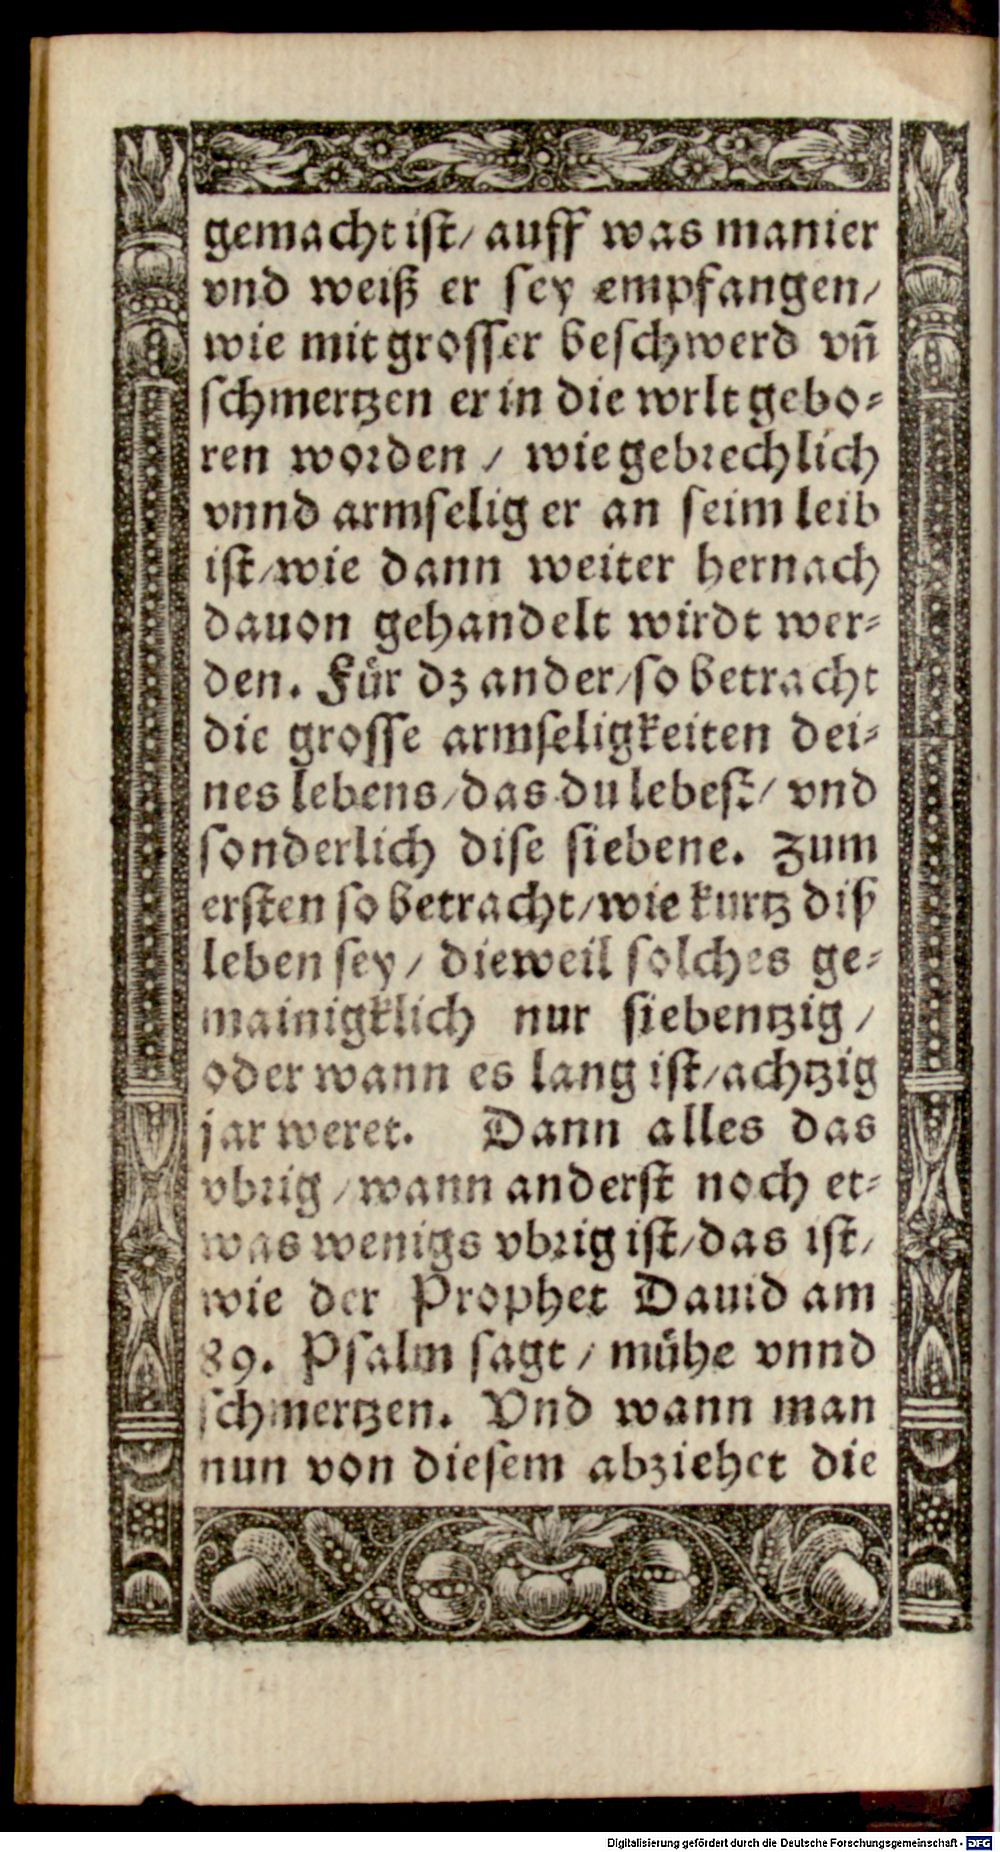 gemacht ist/ auff was manier
vnd weiß er sey empfangen/
wie mit grosser beschwerd vñ
schmertzen er in die wrlt gebo⸗
ren worden / wie gebrechlich
vnnd armselig er an seim leib
ist/wie dann weiter hernach
dauon gehandelt wirdt wer⸗
den. Für dz ander/so betracht
die grosse armseligkeiten dei⸗
nes lebens/das du lebest/ vnd
sonderlich dise siebene. Zum
ersten so betracht/wie kurtz diß
leben sey/ dieweil solches ge⸗
mainigklich nur siebentzig/
oder wann es lang ist/achtzig
jar weret. Dann alles das
vbrig/wann anderst noch et⸗
was wenigs vbrig ist/das ist/
wie der Prophet Dauid am
89. Psalm sagt/ mühe vnnd
schmertzen. Vnd wann man
nun von diesem abziehet die
Digitalisierung gefördert durch die Deutsche Forschungsgemeinschaft - DFG